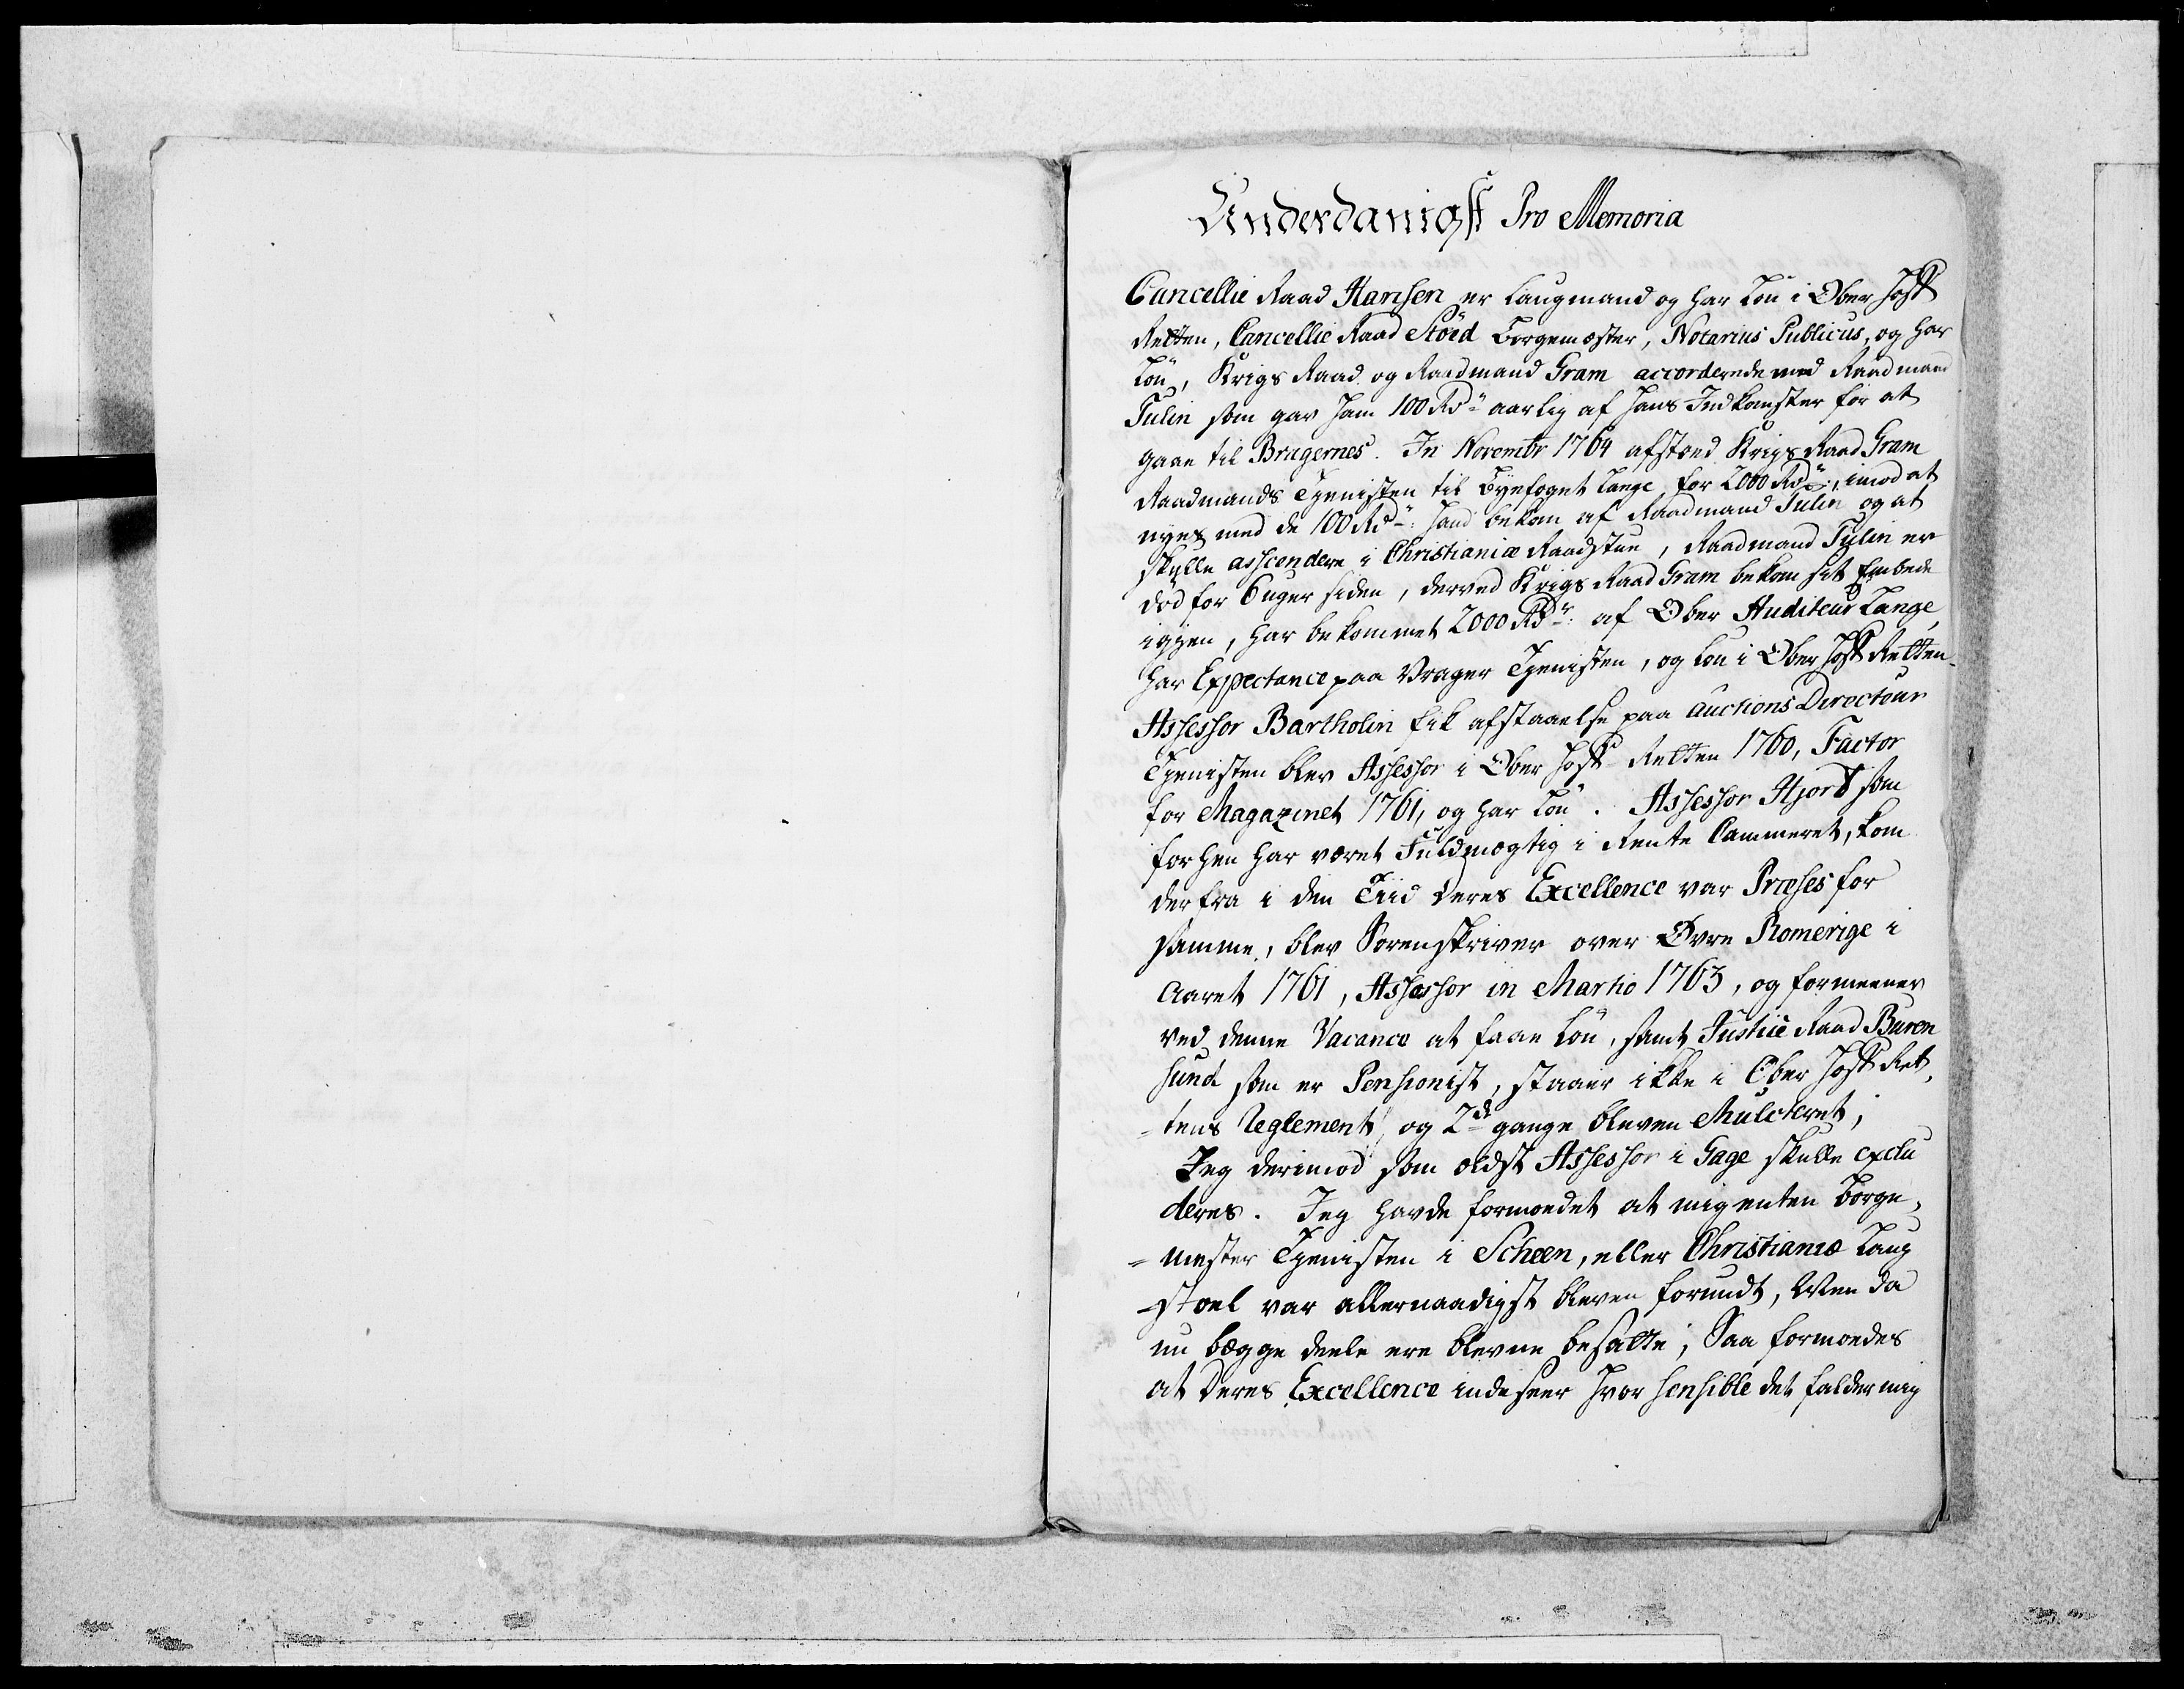 Underdanigst Pro Memoria
Cancellie Raad Hansen er Laugmand og har Lön i Ober Hoff
Retten, Cancellie Raad Störd Borgemæster, Notarius Publicus, og har
Lön, Krigs Raad og Raadmand Gram accorderede med Raadmand
Tulin som gav ham 100 Rdr aarlig af hans Indkomster for at
gaae til Bragernes. In Novembr 1764 afstoed Krigs Raad Gram
Raadmands Tjenisten til Byefoget Lange for 2000 Rdr, imod at
nyes med de 100 Rdr: hand bekom af Raadmand Tulin og at
skulle asscendere i Christianiæ Raadstue, Raadmand Tulin er
död for 6 uger siden, derved Krigs Raad Gram bekom sit Embede
igjen, har bekommet 2000 Rdr: af Ober Auditeur Lange,
har Expectance paa Vrager Tjenisten, og Lön i Ober Hoff Retten.
Assessor Bartholin fik afstaaelse paa Auctions Directeur
Tjenisten blev Assessor i Ober Hoff Retten 1760, Factor
for Magazinet 1761, og har Lön. Assessor Hjort som
forhen har været Fuldmægtig i Rente Cammeret, kom
derfra i den Tiid Deres Excellence var Præses for
samme, blev Sorenskriver over Øvre Romerige i
Aaret 1761, Assessor in Martio 1763, og formeener
ved denne Vacance at faae Lön, samt Justice Raad Baren
sund som er Pensionist, staaer ikke i Ober Hoff Ret,
=tens Reglement, og 2de gange bleven Mulcteret,
Jeg derimod som ældst Assessor i Gage skulle exclu
deres. Jeg havde formoedet at mig enten Borge,
=mester Tjenisten i Scheen, eller Christianiæ Laug
-stoel var allernaadigst bleven forundt, Men da
nu begge deele ere blevne besatte, Saa formoedes
at Deres Excellence indseer hvor sensible det falder mig